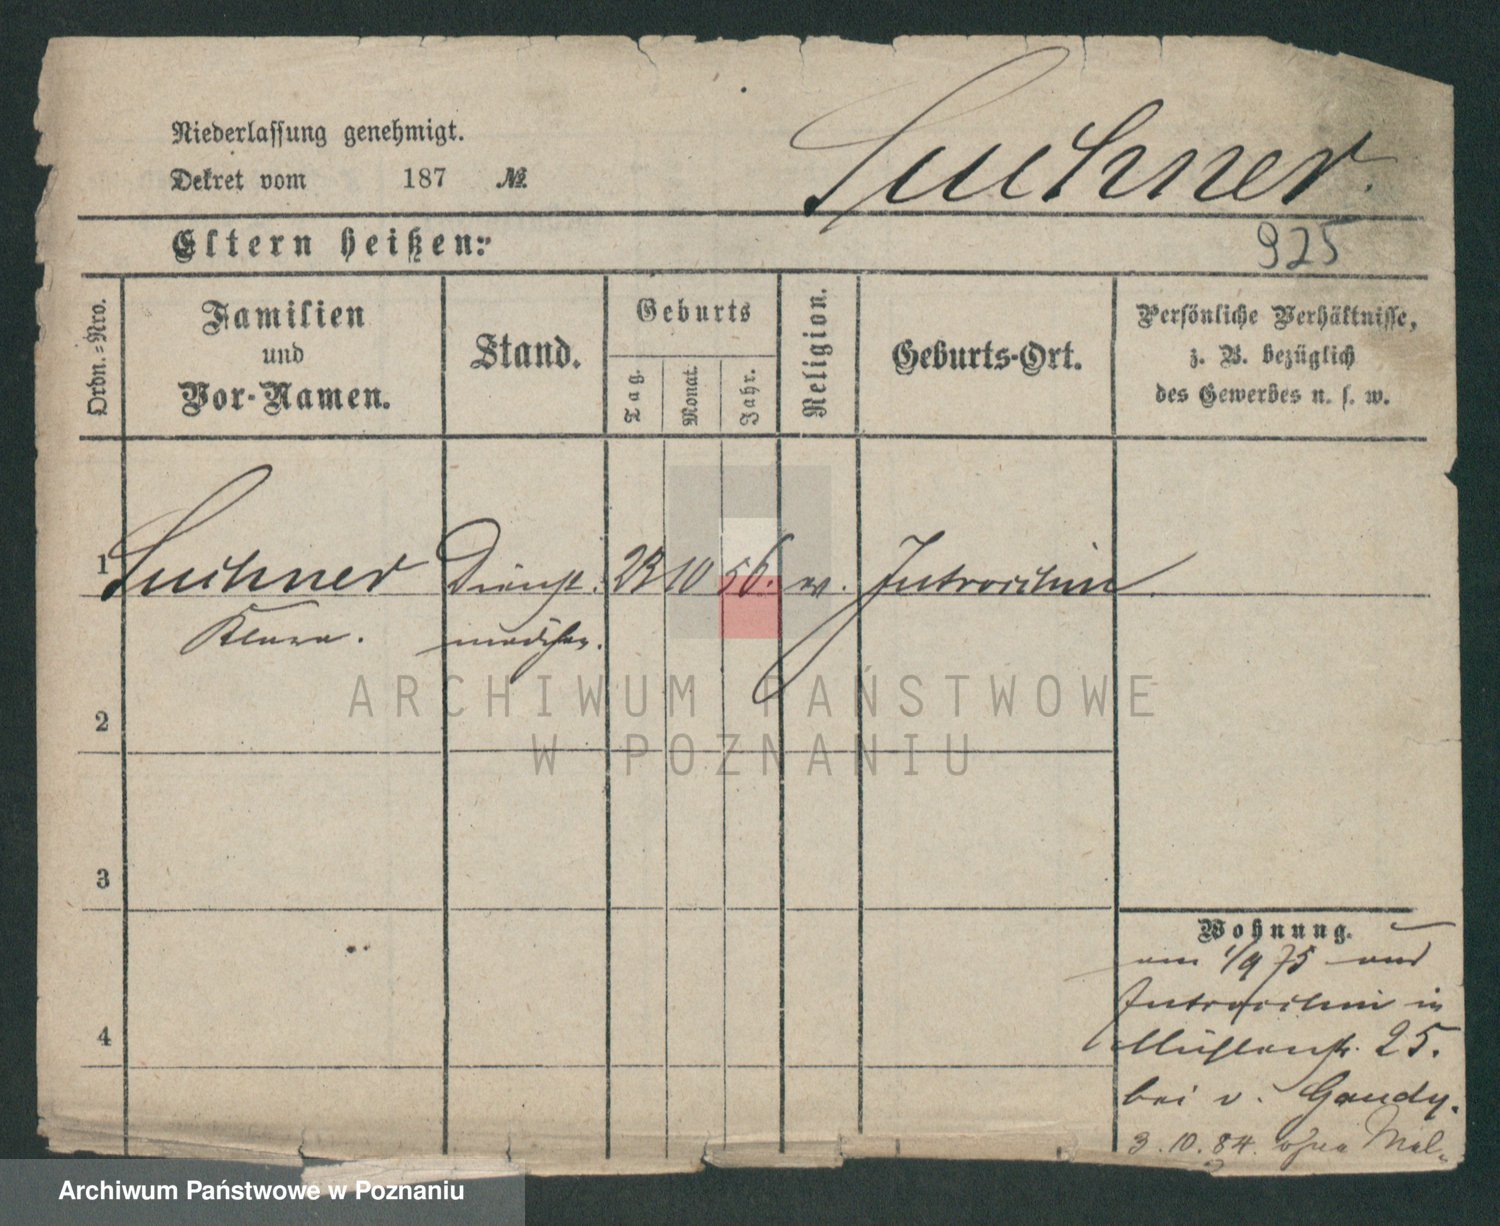 Niederlassung genehmigt.
Dekret vom 187 №
Luchner.
Eltern heißen:
925
Ordn.=Nro.
Familien
und
Vor-Namen.
Stand.
Geburts
Tag.
Monat.
Jahr.
Religion.
Geburts-Ort.
Persönliche Verhältnisse,
z. B. bezüglich
des Gewerbes u. s. w.
1 Luchner Dienst. 23 10 56. Jutroschin
Klara. mädchen.
ARCHIWUM PAŃSTWOWE
W POZNANIU
2
3
Wohnung.
am 1/9 75 aus
Jutroschin in
4
Mühlenstr. 25.
bei v. Gaudy.
3.10.84. ohne
Archiwum Państwowe w Poznaniu